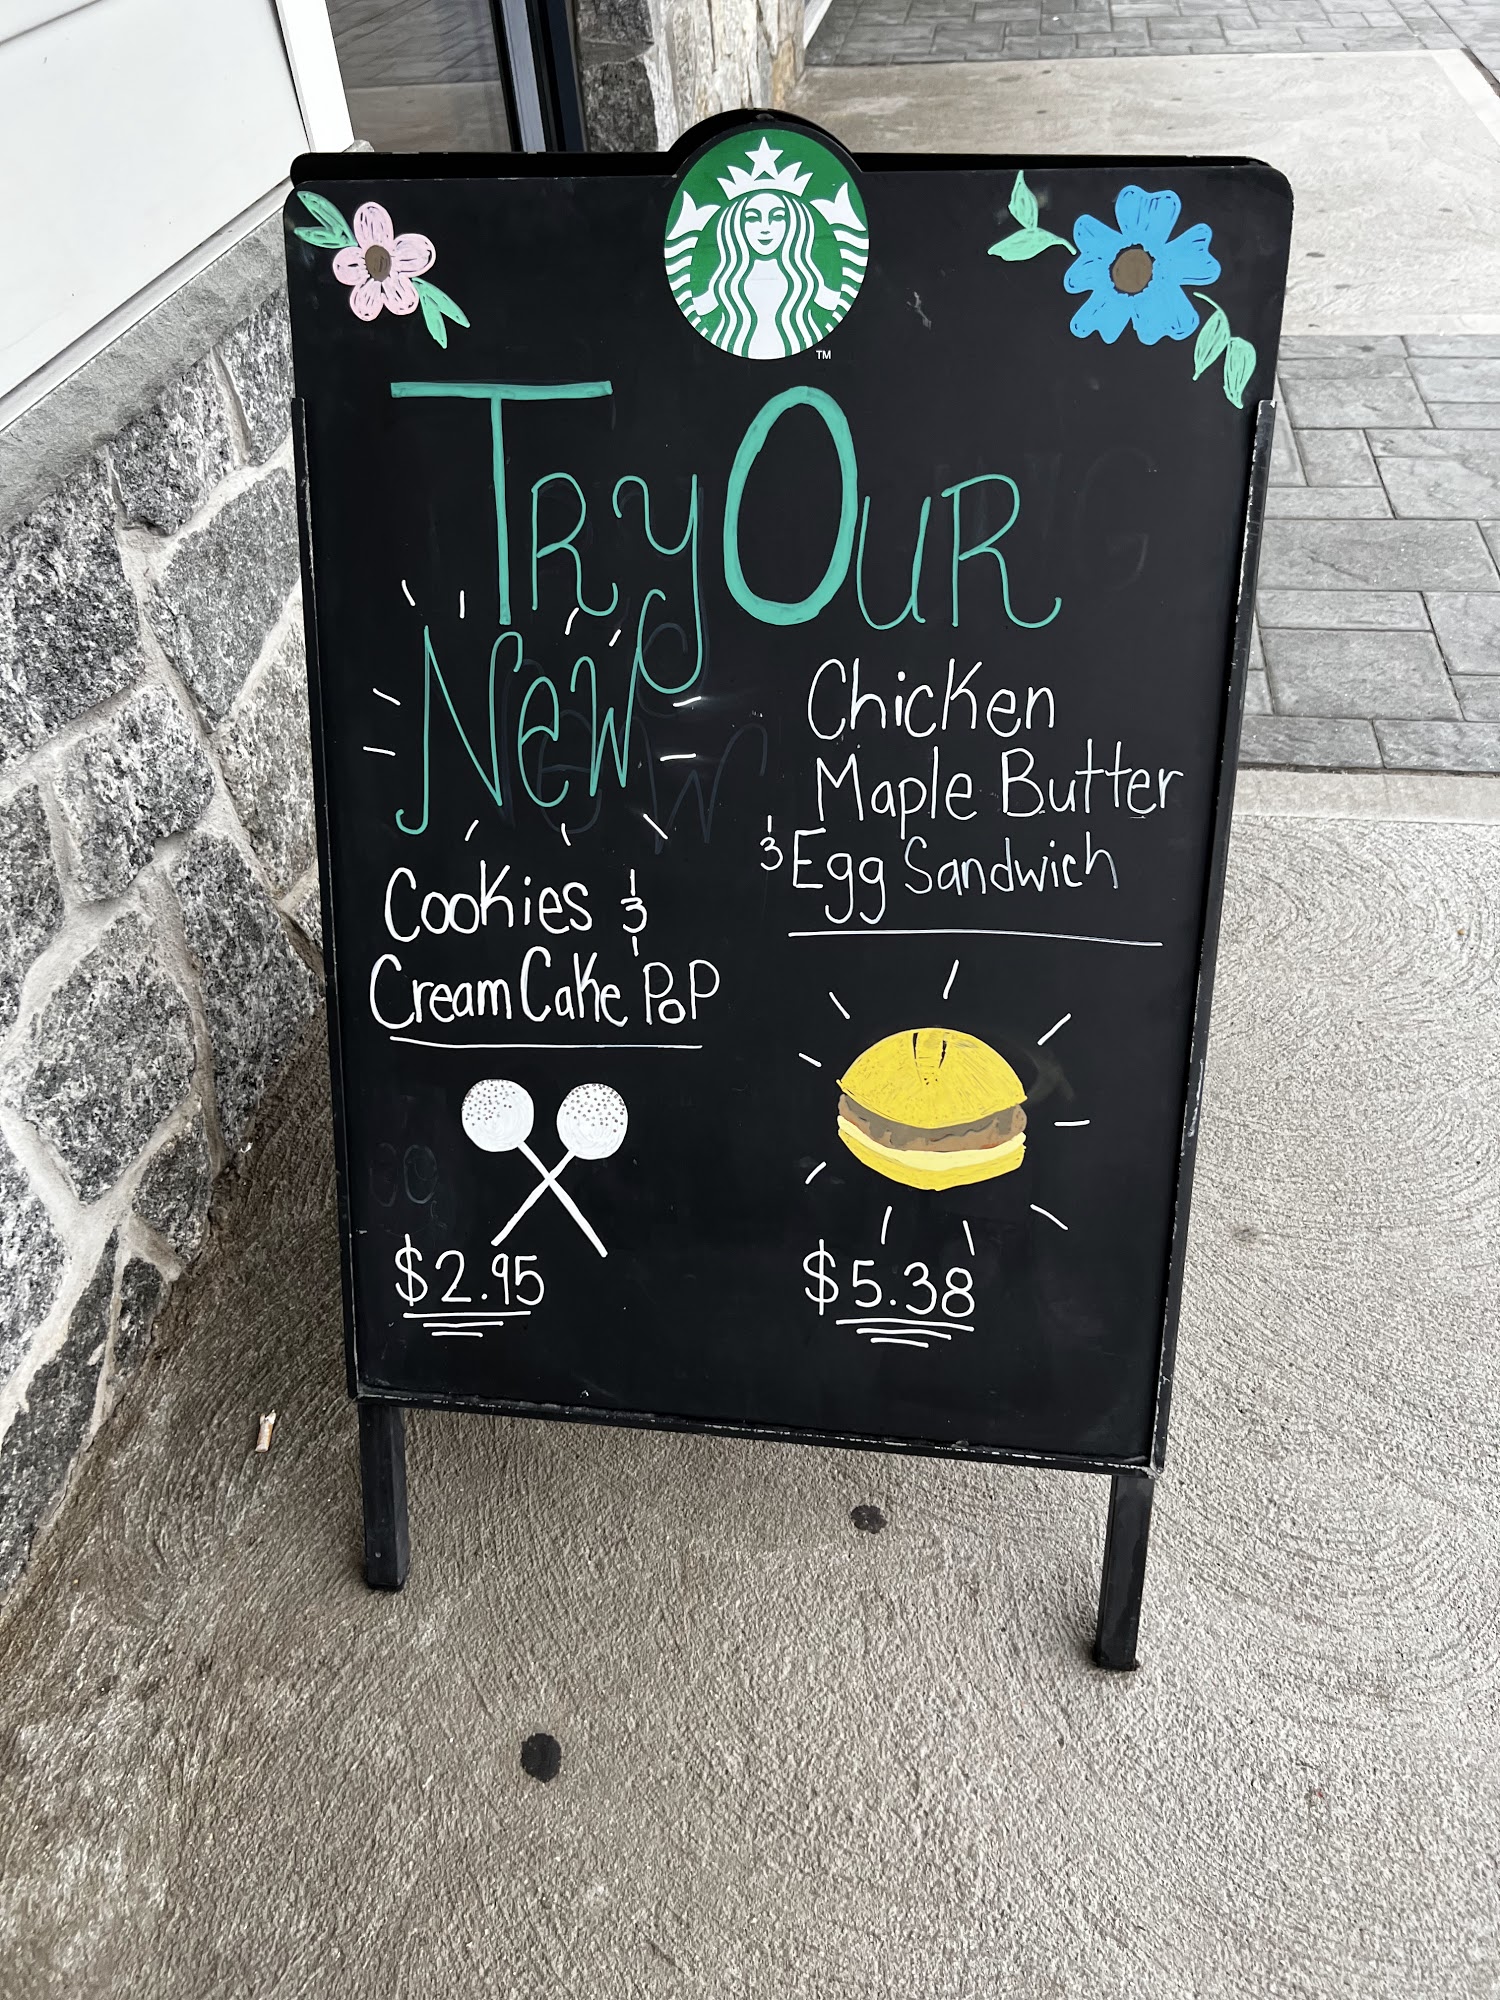 TM
Try Our
New
Cookies &
Cream Cake Pop
$2.95
Chicken
Maple Butter
& Egg Sandwich
$5.38